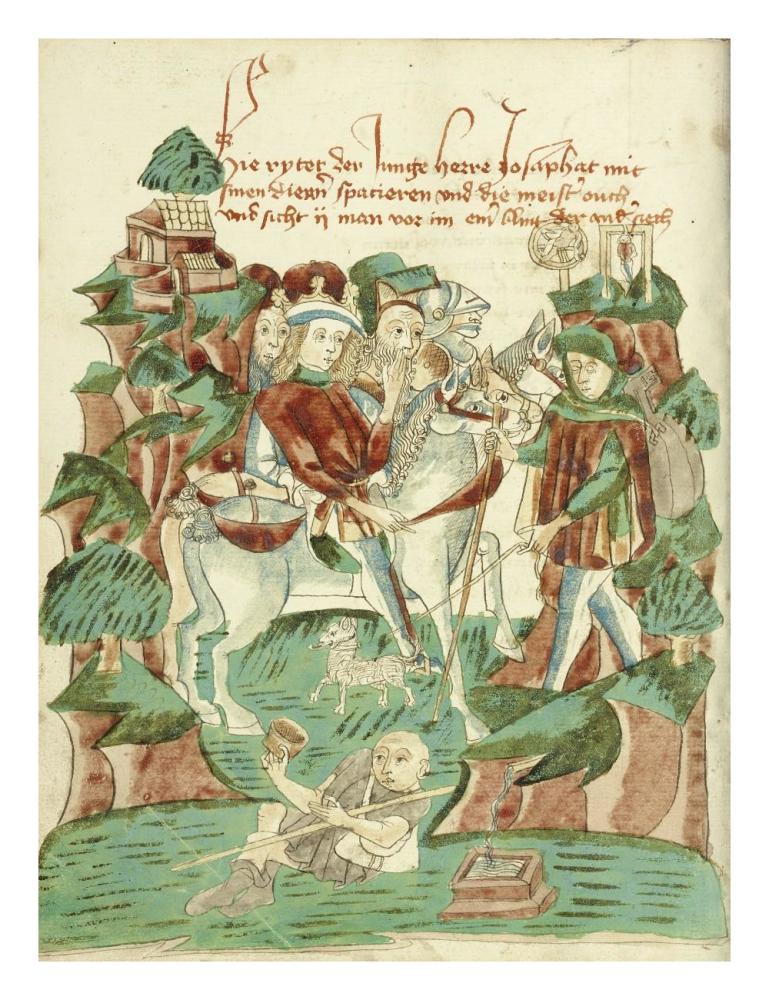 Hie rytet der Junge herre Josaphat mit
sinen dienn̄ spacieren vnd die meist ouch
vnd sicht ij man vor im ein blint der and siech